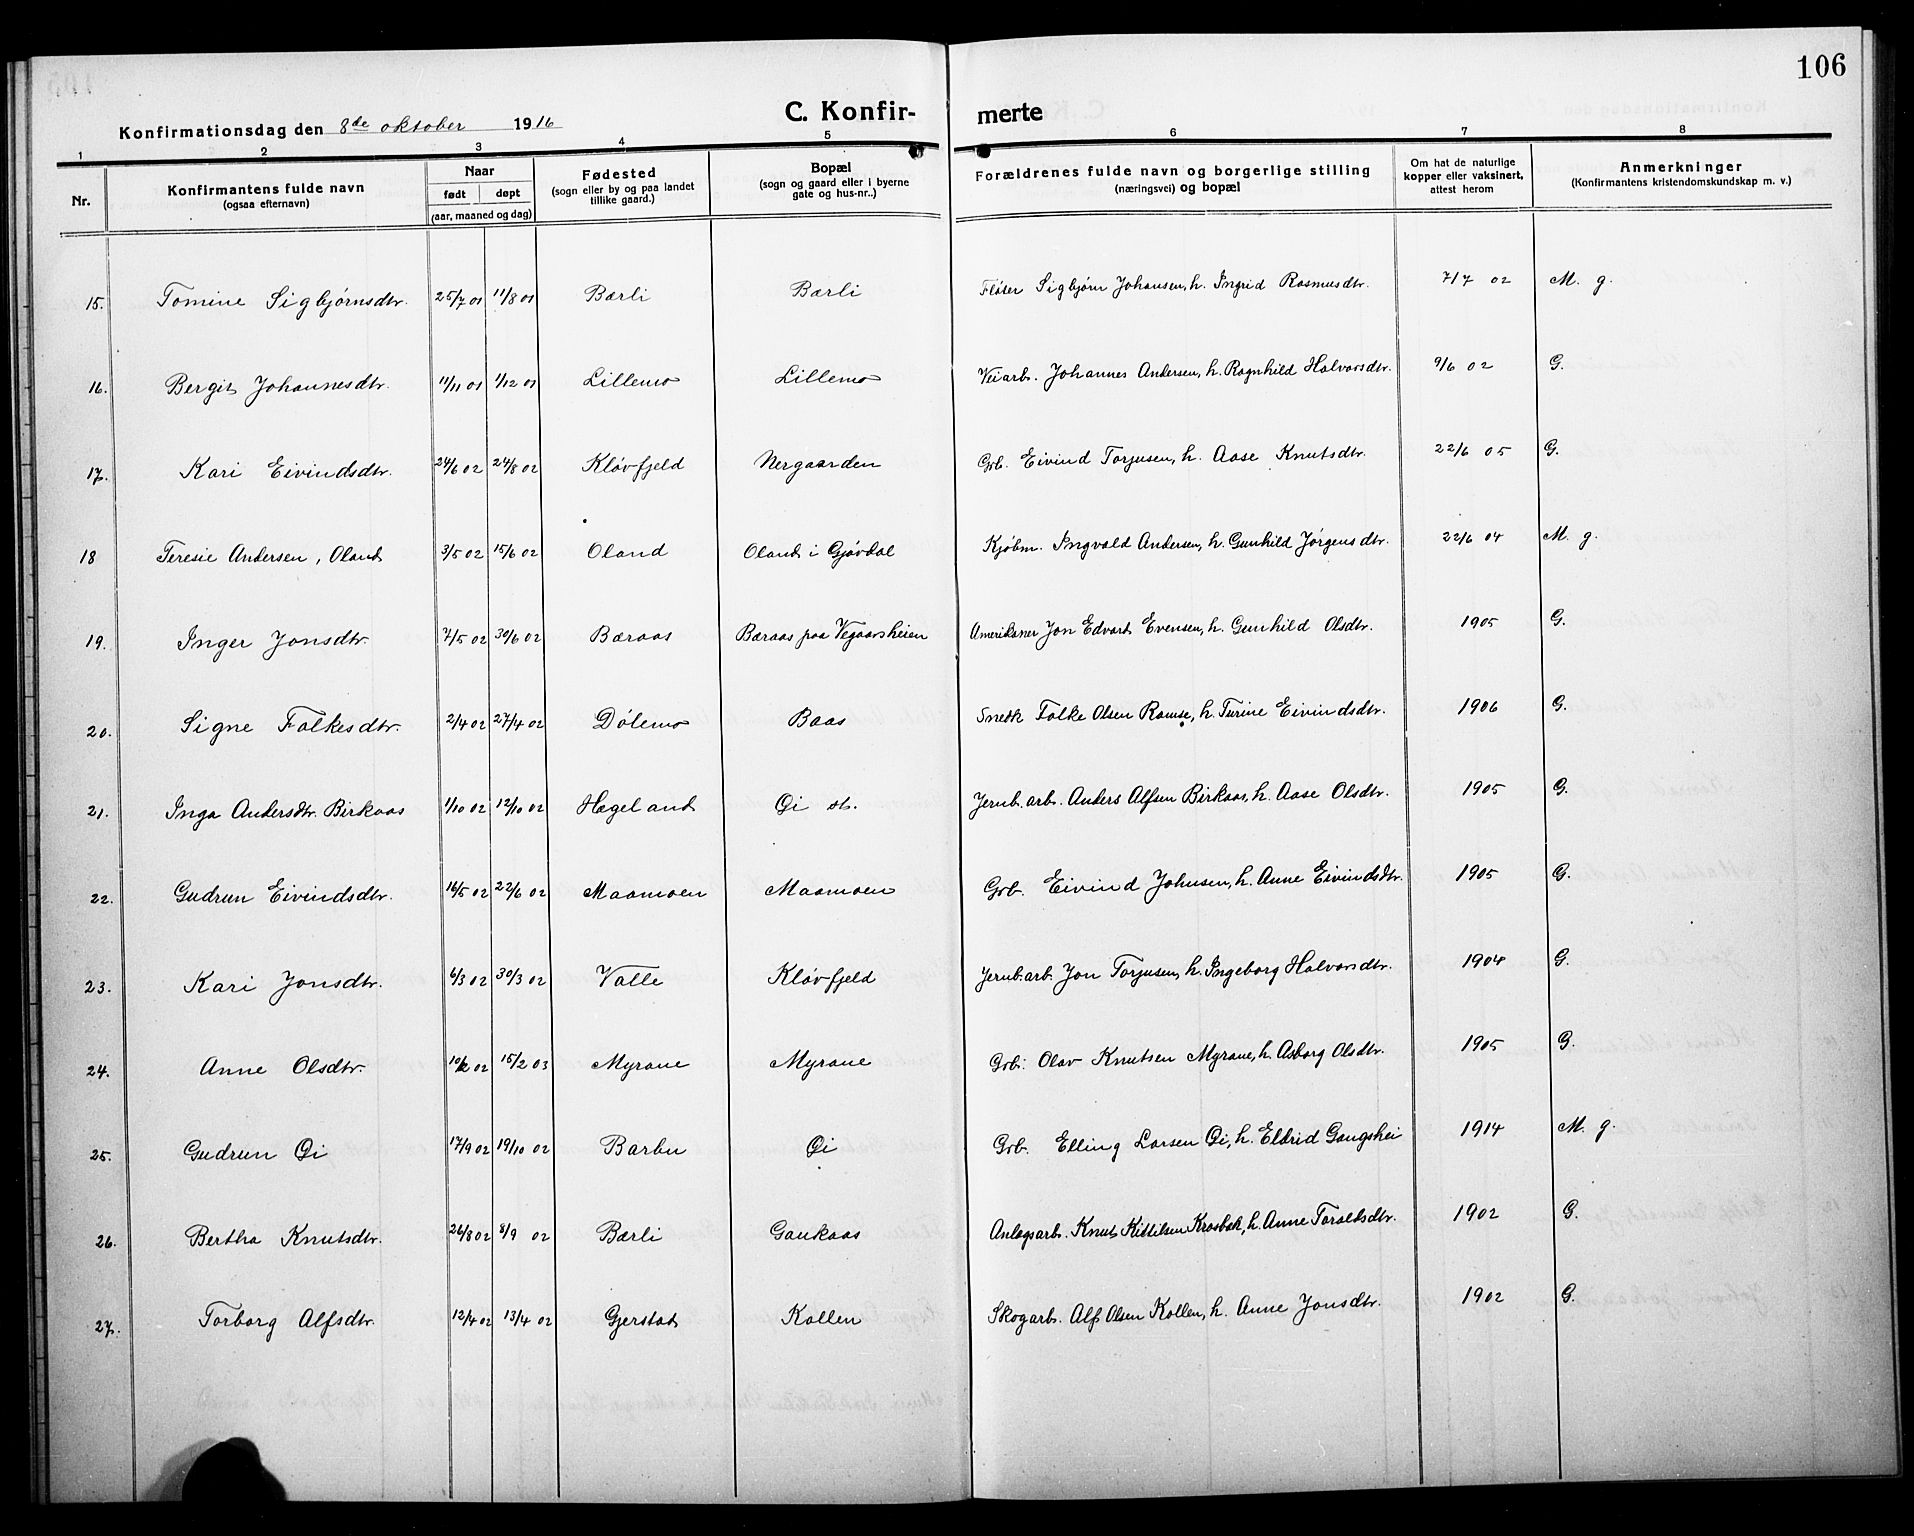 106
Konfirmationsdag den 8de oktober 1916 C. Konfir- merte
1 2 3 4 5 6 7 8
Nr. Konfirmantens fulde navn (ogsaa efternavn) Naar født døpt (aar, maaned og dag) Fødested (sogn eller by og paa landet tillike gaard.) Bopæl (sogn og gaard eller i byerne gate og hus-nr..) Forældrenes fulde navn og borgerlige stilling (næringsvei) og bopæl Om hat de naturlige kopper eller vaksinert, attest herom Anmerkninger (Konfirmantens kristendomskundskap m. v.)
15. Tomine Sigbjørnsdtr. 25/7 01 11/8 01 Bærli Bærli Fløter Sigbjørn Johansen, h. Ingrid Rasmusdtr. 7/7 02 M. g.
16. Bergit Johannesdtr. 11/11 01 1/12 01 Lillemo Lillemo Veiarb. Johannes Andersen, h. Ragnhild Halvorsdtr. 9/6 02 G.
17. Kari Eivindsdtr. 24/6 02 24/8 02 Kløvfjeld Nergaarden Grb. Eivind Torjusen, h. Aase Knutsdtr. 22/6 05 G.
18 Teresie Andersen, Oland 3/5 02 15/6 02 Oland Oland i Gjøvdal Kjøbm. Ingvald Andersen, h. Gunhild Jørgensdtr. 22/6 04 M. g.
19. Inger Jonsdtr. 7/5 02 30/6 02 Bæraas Bæraas paa Vegaarsheien Amerikaner Jon Edvart Evensen, h. Gunhild Olsdtr. 1905 G.
20. Signe Falkesdtr. 2/4 02 27/4 02 Dølemo Baas Snedk Falke Olsen Ramse, h. Turine Eivindsdtr. 1906 G.
21. Inga Andersdtr. Birkaas 1/10 02 12/10 02 Hægeland Øi st. Jernb.arb. Anders Alfsen Birkaas, h. Aase Olsdtr. 1905 G.
22. Gudrun Eivindsdtr. 16/5 02 22/6 02 Maamoen Maamoen Grb. Eivind Johnsen, h. Anne Eivindsdtr. 1905 G.
23. Kari Jonsdtr. 6/3 02 30/3 02 Valle Kløvfjeld Jernb.arb. Jon Torjusen, h. Ingeborg Halvorsdtr. 1904 G.
24. Anne Olsdtr. 10/2 02 15/2 03 Myrane Myrane Grb. Olav Knutsen Myrane, h. Asborg Olsdtr. 1905 G.
25. Gudrun Øi 17/9 02 19/10 02 Barbu Øi Grb. Elling Larsen Øi, h. Eldrid Gangshei 1914 M. g.
26. Bertha Knutsdtr. 26/8 02 8/9 02 Bærli Gaukaas Anlægsarb. Knut Kittilsen Krosbæk, h. Anne Taraldsdtr. 1902 G.
27. Torborg Alfsdtr. 12/4 02 13/4 02 Gjerstad Kollen Skogarb. Alf Olsen Kollen, h. Anne Jonsdtr. 1902 G.